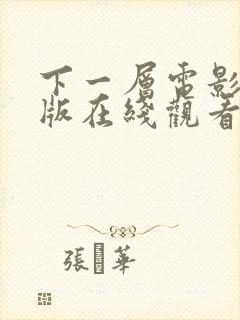 下一層電影
版在綫觀看
張 華